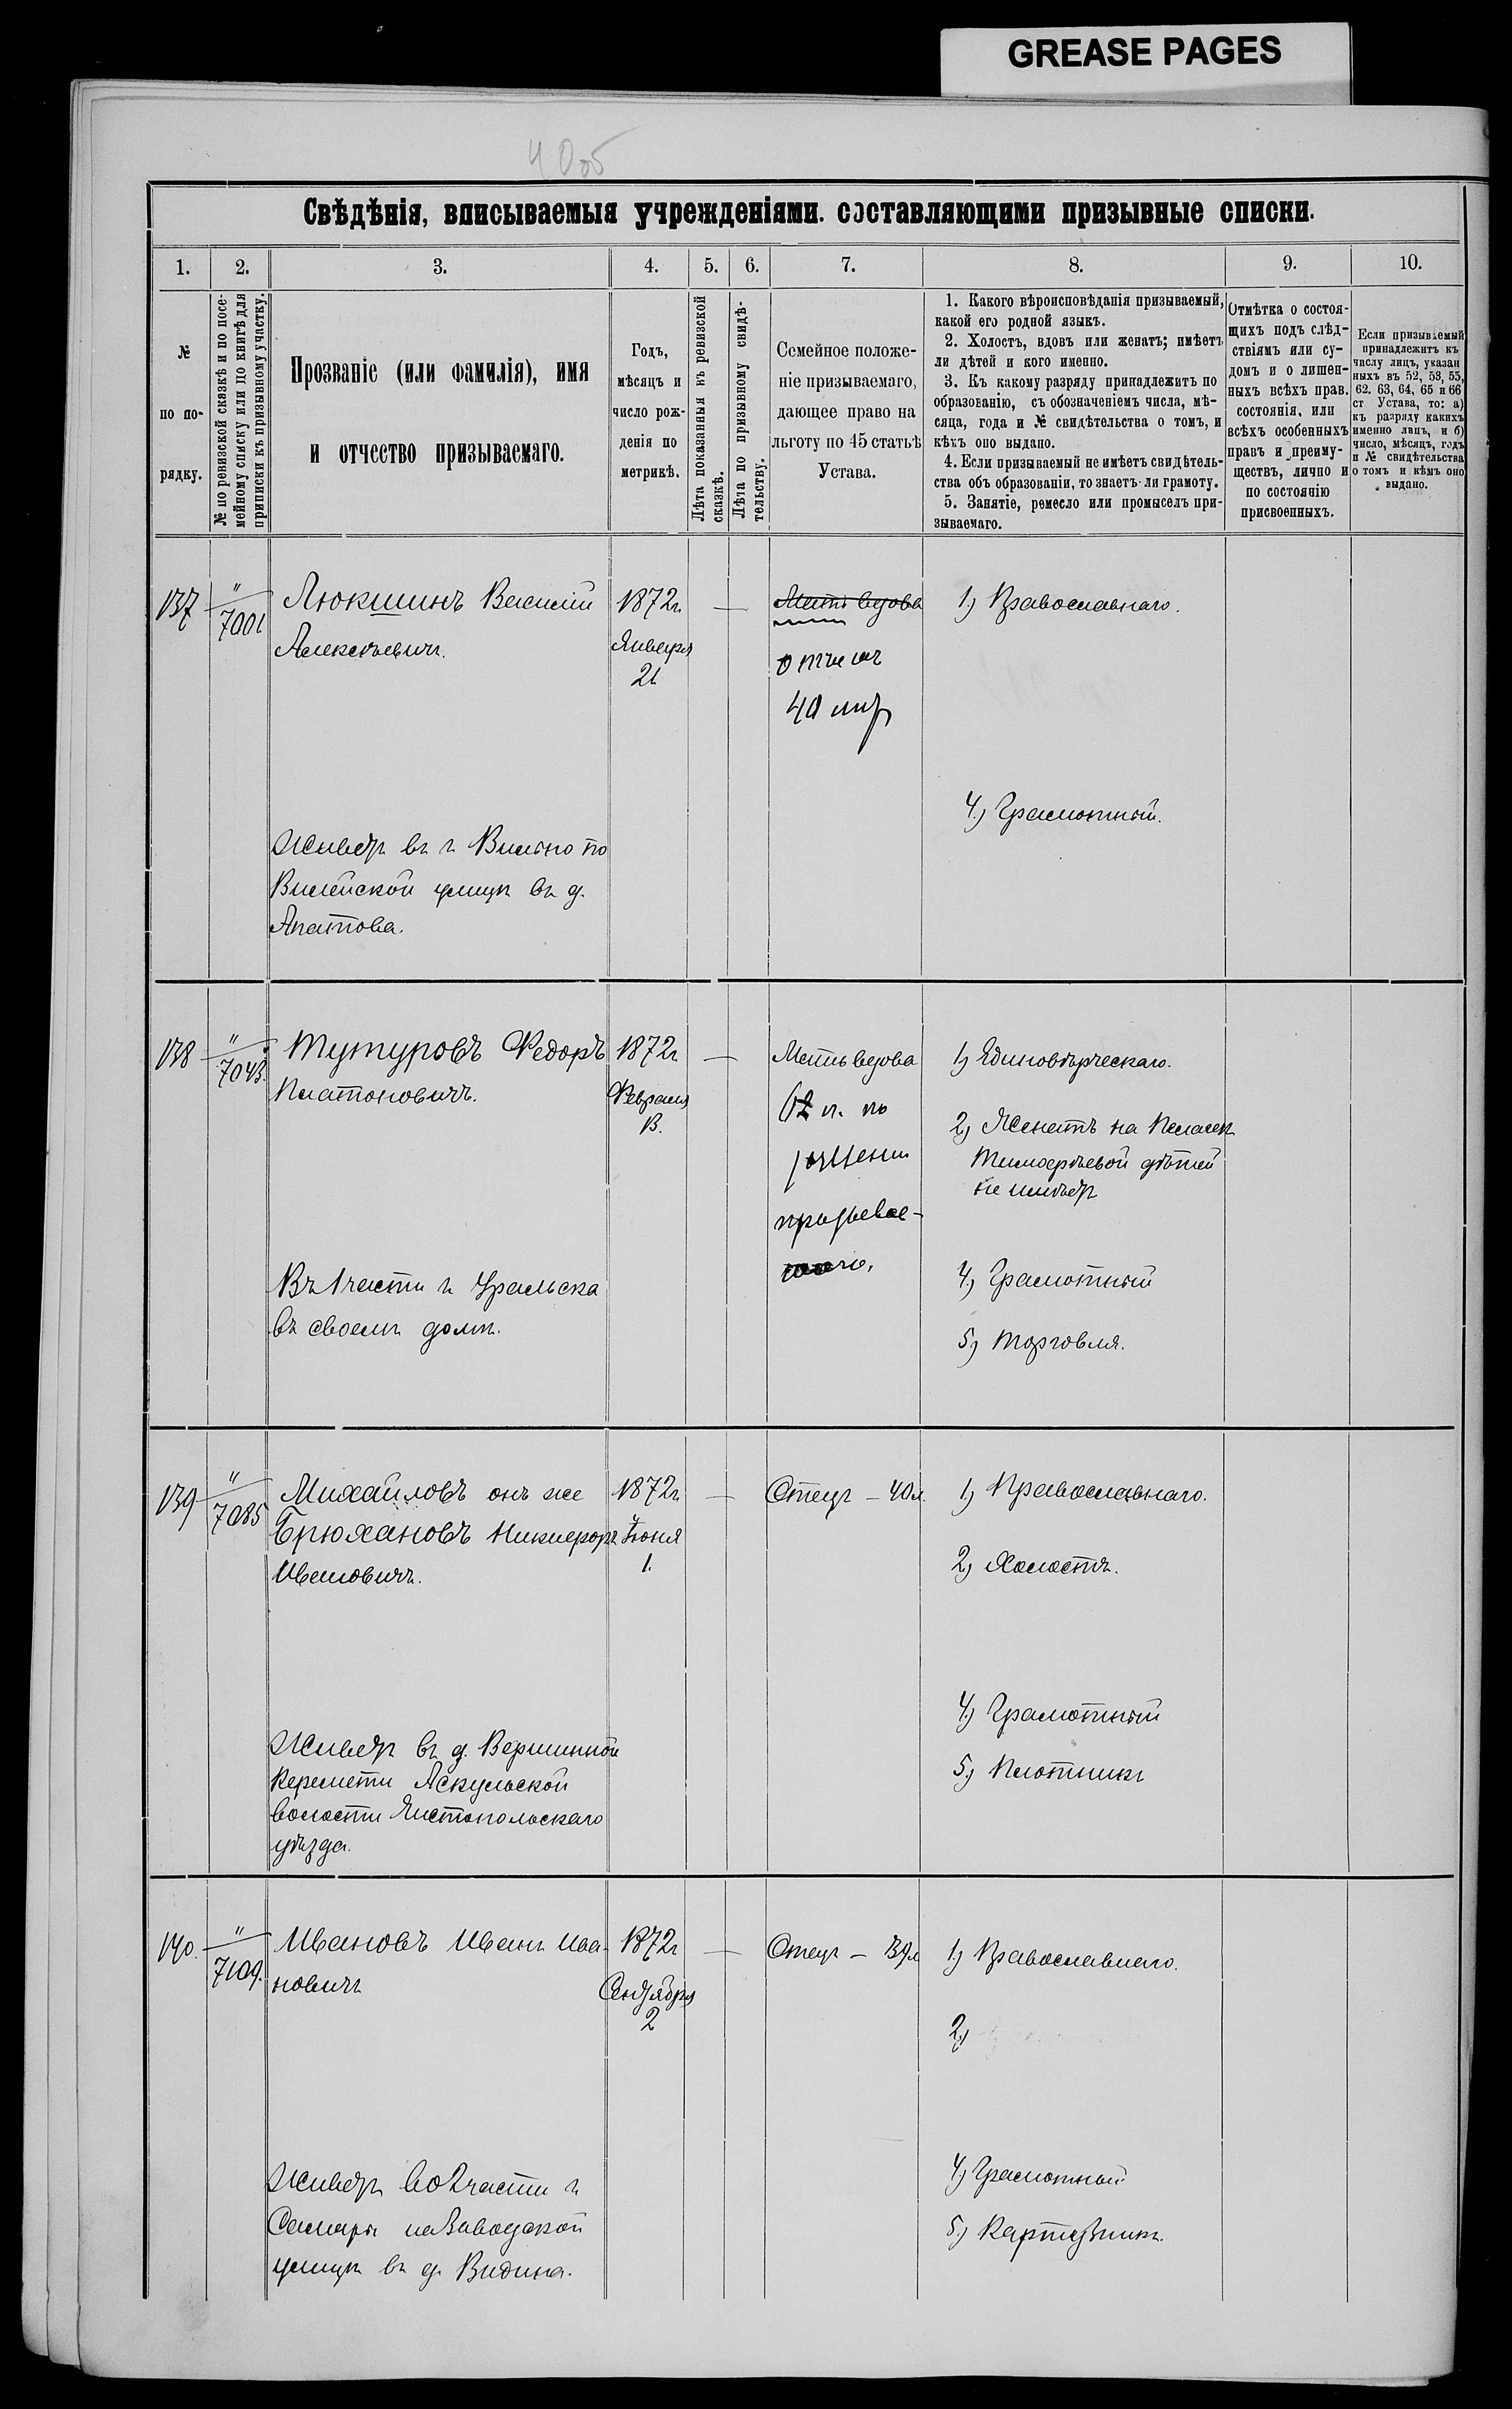 GREASE PAGES
40об
Свѣдѣнія, вписываемыя учрежденіями. составляющими призывные списки.
1. 2. 3. 4. 5. 6. 7. 8. 9. 10.
№ по по- рядку.
№ по ревизской сказкѣ и по посе-
мейному списку или по книгѣ для
приписки къ призывному участку.
Прозваніе (или фамилія), имя
и отчество призываемаго.
Годъ,
мѣсяцъ и
число рож-
денія по
метрикѣ.
Лѣта показанныя къ ревизской
сказкѣ.
Лѣта по призывному свидѣ-
тельству.
Семейное положе-
ніе призываемаго,
дающее право на
льготу по 45 статьѣ
Устава.
1. Какого вѣроисповѣданія призываемый,
какой его родной языкъ.
2. Холостъ, вдовъ или женатъ; имѣетъ
ли дѣтей и кого именно.
3. Къ какому разряду принадлежитъ по
образованію, съ обозначеніемъ числа, мѣ-
сяца, года и № свидѣтельства о томъ, и
кѣмъ оно выдано.
4. Если призываемый не имѣетъ свидѣтель-
ства объ образованіи, то знаетъ-ли грамоту.
5. Занятіе, ремесло или промыселъ при-
зываемаго.
Отмѣтка о состоя-
щихъ подъ слѣд-
ствіямъ или су-
домъ и о лишен-
ныхъ всѣхъ прав.
состоянія, или
всѣхъ особенныхъ
правъ и преиму-
ществъ, лично и
по состоянію
присвоенныхъ.
Если призываемый
принадлежитъ къ
числу лицъ, указан
ныхъ въ 52, 53, 55,
62. 63, 64, 65 и 66
ст Устава, то: а)
къ разряду какихъ
именно лицъ, и б)
число, мѣсяцъ, годъ
и № свидѣтельства
о томъ и кѣмъ оно
выдано.
137 " 7001 Люкшинъ Василій 1872г. — Мать вдова 1) Православнаго.
Алексѣевичъ. Января
21
отчим
40 лѣтъ
4) Грамотный.
Живетъ въ г Вильно по
Вилейской улицѣ въ д.
Апатова.
138 " 7043. Тутуровъ Федоръ 1872г. — Мать вдова 1) Единовѣрческаго.
Платоновичъ. Февраля
13.
2) Женатъ на Пелагеѣ
Тимофѣевой дѣтей
не имѣетъ
Въ 1 части г Уральска
въ своемъ домѣ.
4) Грамотный
5) Торговля.
139 " 7085 Михайловъ онъ же 1872г. — Отецъ – 40л. 1) Православнаго.
Брюхановъ Никифоръ Іюня
Ивановичъ. 1.
2) Холостъ.
4) Грамотный
5) Плотникъ
Живетъ въ д. Вершинной
Керемети Аскульской
волости Чистопольскаго
уѣзда.
140. " 7109. Ивановъ Иванъ Ива- 1872г. — Отецъ – 39л 1) Православнаго.
новичъ Сентября
2
2)
4) Грамотный
5) Картузникъ.
Живетъ во 2 части г
Самары на Заводской
улицѣ въ д. Видина.